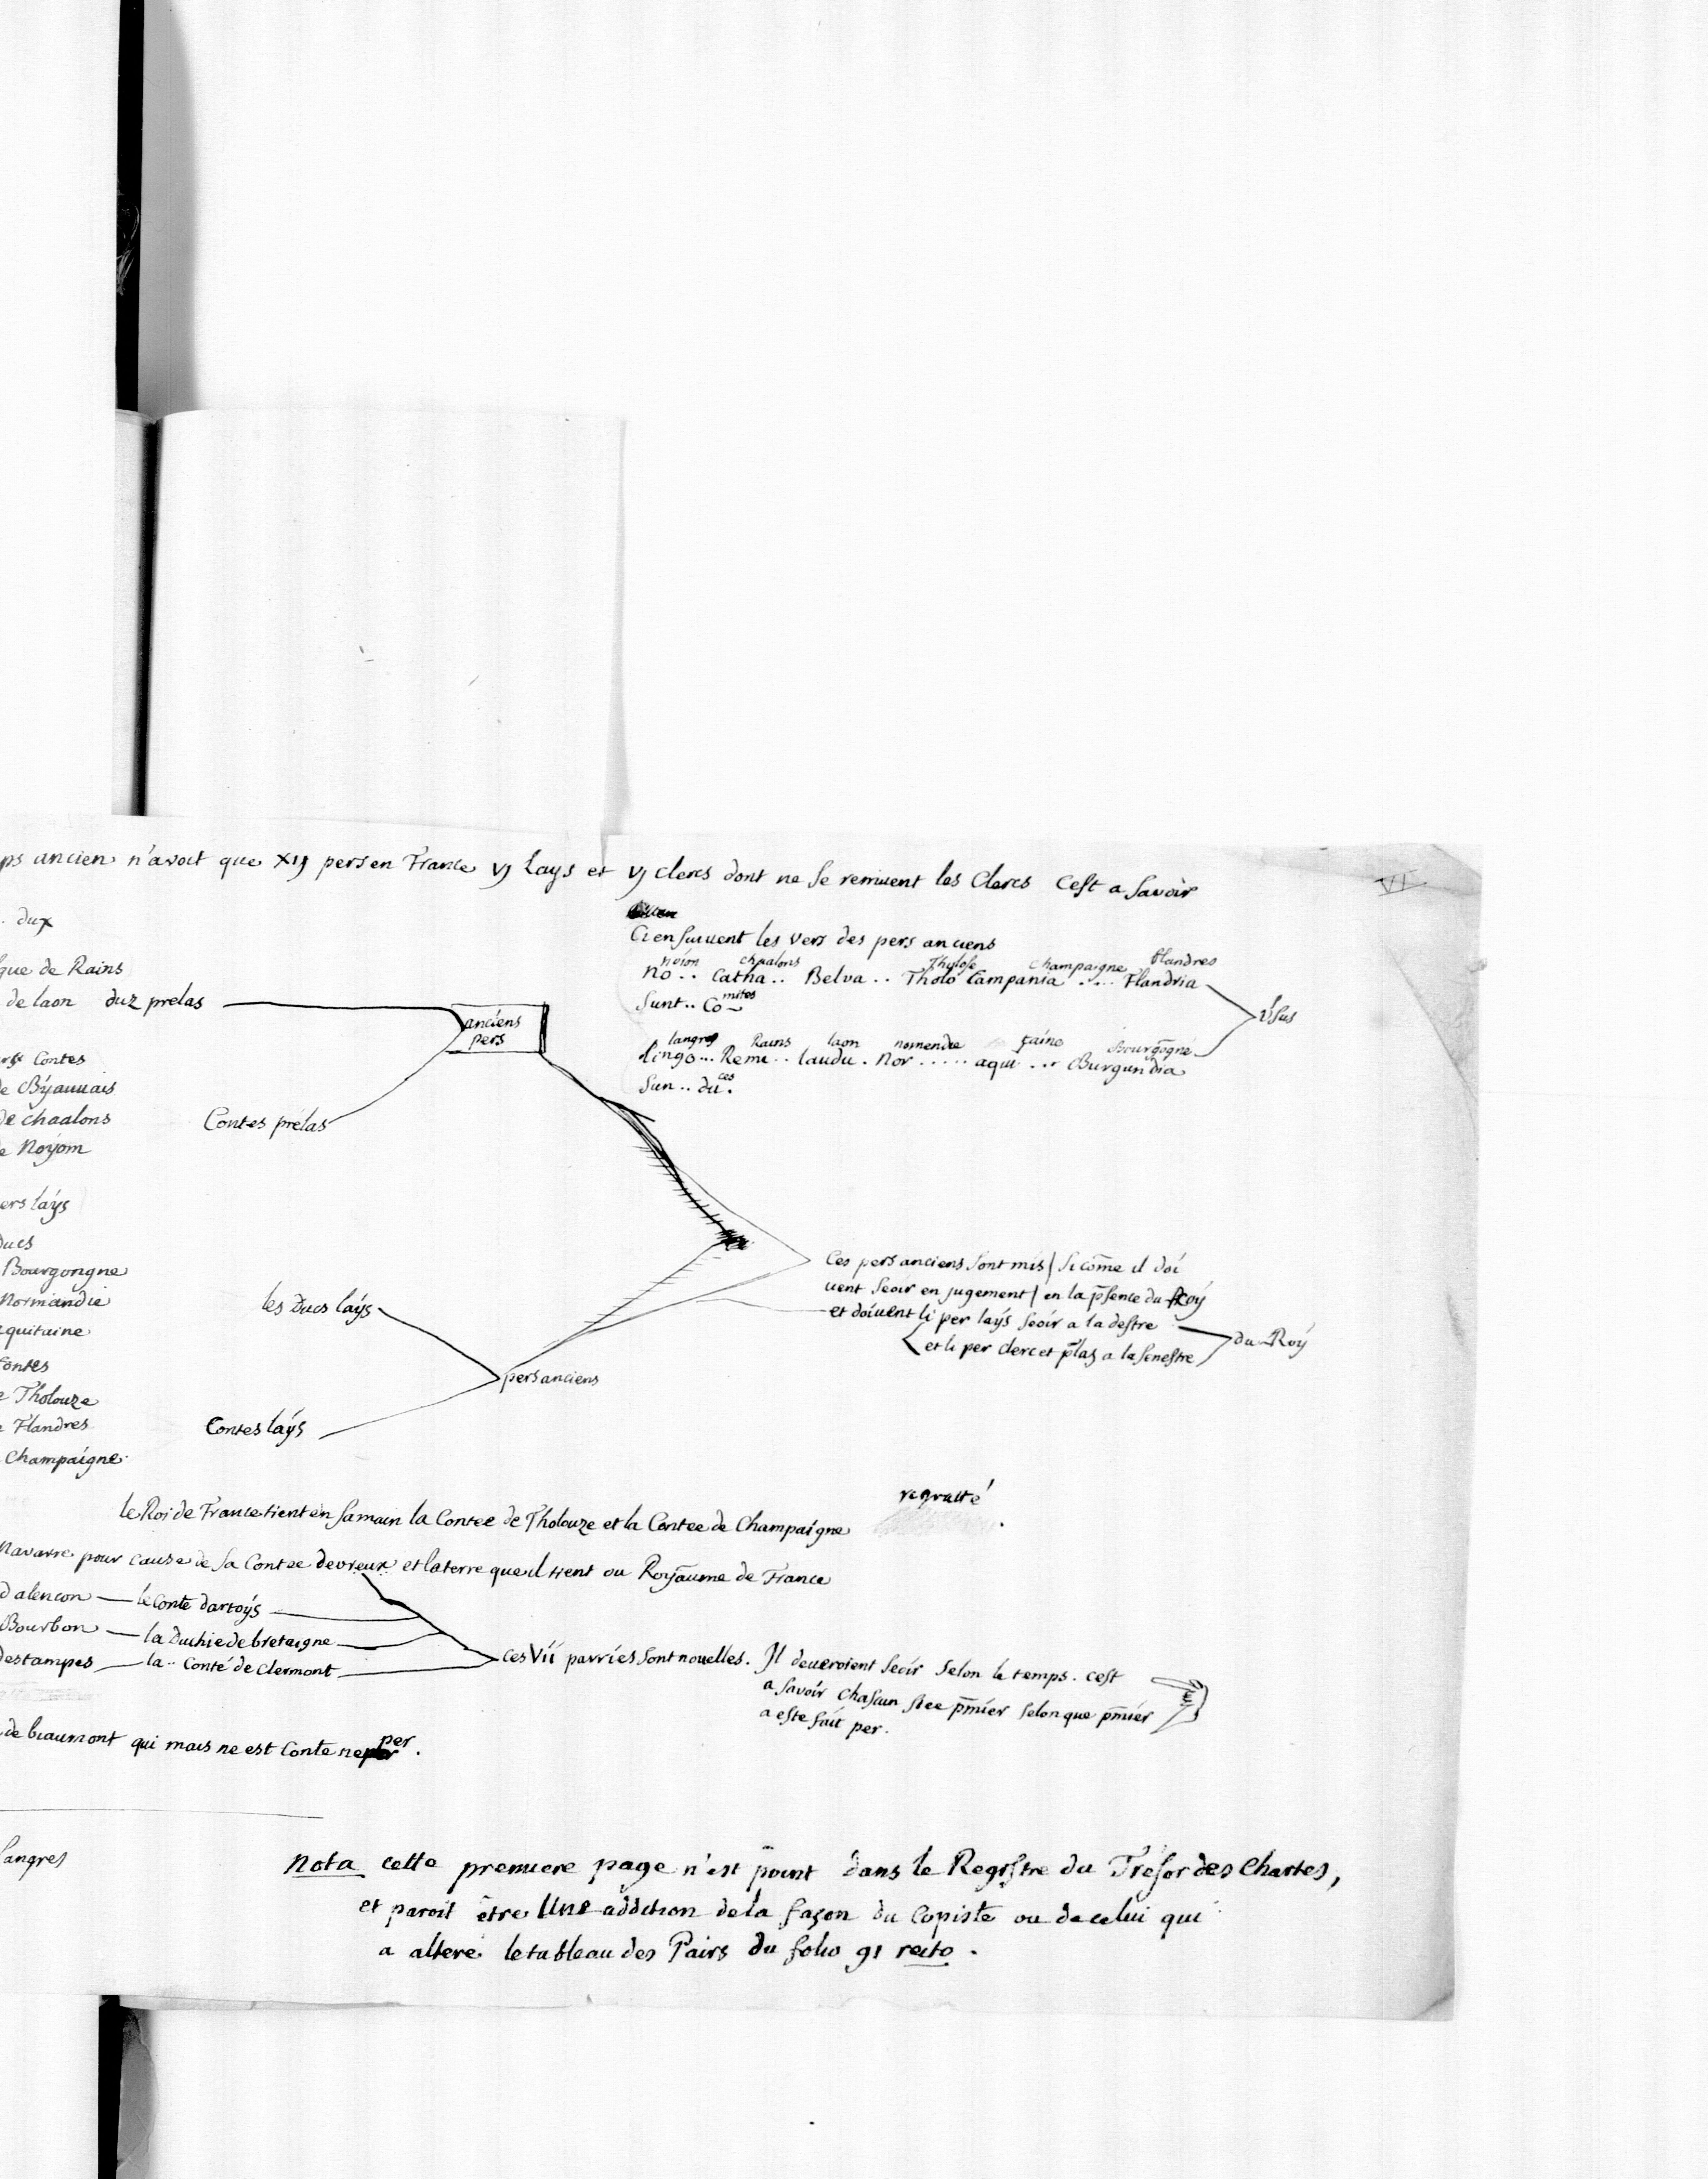 ps ancien n'avoit que xij pers en France vj Lays et vj clercs dont ne se remuent les Clercs Cest a savoir
VI
dux
que de Rains
de laon duz prelas
Contes
de Byauuais
de chaalons
Noyom
Contes prelas
anciens
pers
Ci ensuiuent les vers des pers anciens
noion chaalons Tholose Champaigne flandres
No.. Catha.. Belva.. Tholo Campania .... Flandria
Sunt.. Comites
langres Rains laon normendie taine Bourgogne
Lingo... Remi.. laudu. Nor ..... aqui ... Burgundia
Sun.. duces.
ers lays
ducs
Bourgongne
Normandie
quitaine
Contes
Tholouze
Flandres
Champaigne
les Ducs lays
Contes lays
pers anciens
Ces pers anciens sont mis / si cõme il doi
uent seoir en jugement / en la p̃sence du Roy
et doiuent li per lays seoir a la destre
et li per clerc et p̃laz a la senestre
du Roy
le Roi de France tient en sa main la Contee de Tholouze et la Contee de Champaigne
regratté
Navarre pour cause de sa Contee devreux et la terre que il tient ou Royaume de France
d'alencon — le Conte dartoys
Bourbon — la Duchie de bretaigne
destampes — la .. Conté de Clermont
Ces Vii parries sont nouelles. Il deueroient seoir selon le temps. cest
a savoir Chascun p̃mier selon que p̃mier
a este fait per.
de biaumont qui mais ne est Conte ne per.
Langres
Nota cette premiere page n'est point dans le Registre du Tresor des Chartes,
et paroit être Une addition de la façon du Copiste ou de celui qui
a alteré le tableau des Pairs du folio 91 recto.